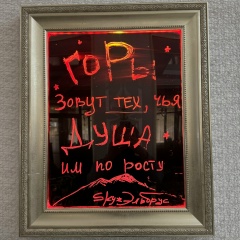 гоРы
Зовут тех, чья
ДУША
им по росту
Эльбрус